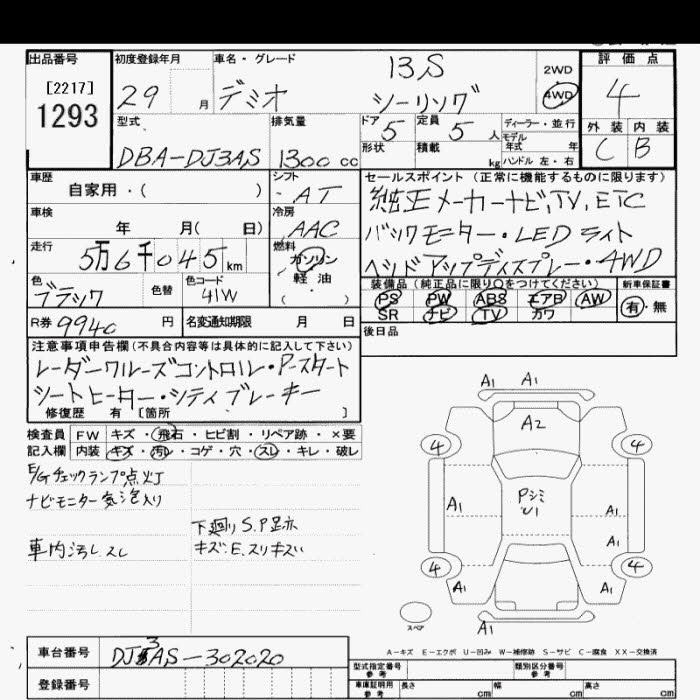 出品番号 初度登録年月 車名・グレード 13S 2WD 評価点
[2217] 29 月 デミオ シーリング 4WD 4
1293
型式 排気量 ドア 5 定員 5 人 ディーラー・並行 外装 内装
モデル年式 年
DBA-DJ3AS 1300 cc 形状 積載 kg ハンドル 左・右 C B
車歴 シフト セールスポイント (正常に機能するものに限ります)
自家用・( ) AT 純正メーカーナビ,TV,ETC
車検 冷房
年 月( 日) AAC バックモニター・LEDライト
走行 燃料
5万6千045km ガソリン ヘッドアップディスプレー・4WD
軽油
・( )
色 色替 色コード 装備品 (純正品に限り○をつけてください) 新車保証書
ブラック 41W PS PW ABS エアB AW 有・無
SR ナビ TV カワ
R券 9940 円 名変通知期限 月 日 後日品
注意事項申告欄(不具合内容等は具体的に記入して下さい)
レーダークルーズコントロール・Pスタート
シートヒーター・シティブレーキー
修復歴 有 [箇所 ]
検査員 FW キズ・飛石・ヒビ割・リペア跡・×要
記入欄 内装 キズ・汚レ・コゲ・穴・スレ・キレ・破レ
E/Gチェックランプ点灯
ナビモニター気泡入り
車内汚レ スレ
下廻りS.P足赤
キズ・E.スリキズい
A1 A1
A2
4 4
Pシミ
U1
A1 A1
A1
4 4
A1 A1
A1
スペア
A-キズ E-エクボ U-凹み W-補修跡 S-サビ C-腐食 XX-交換済
車台番号 DJ3AS-302020
登録番号
型式指定番号 参考 類別区分番号 参考
車庫証明用 参考 長さ cm 幅 cm 高さ cm